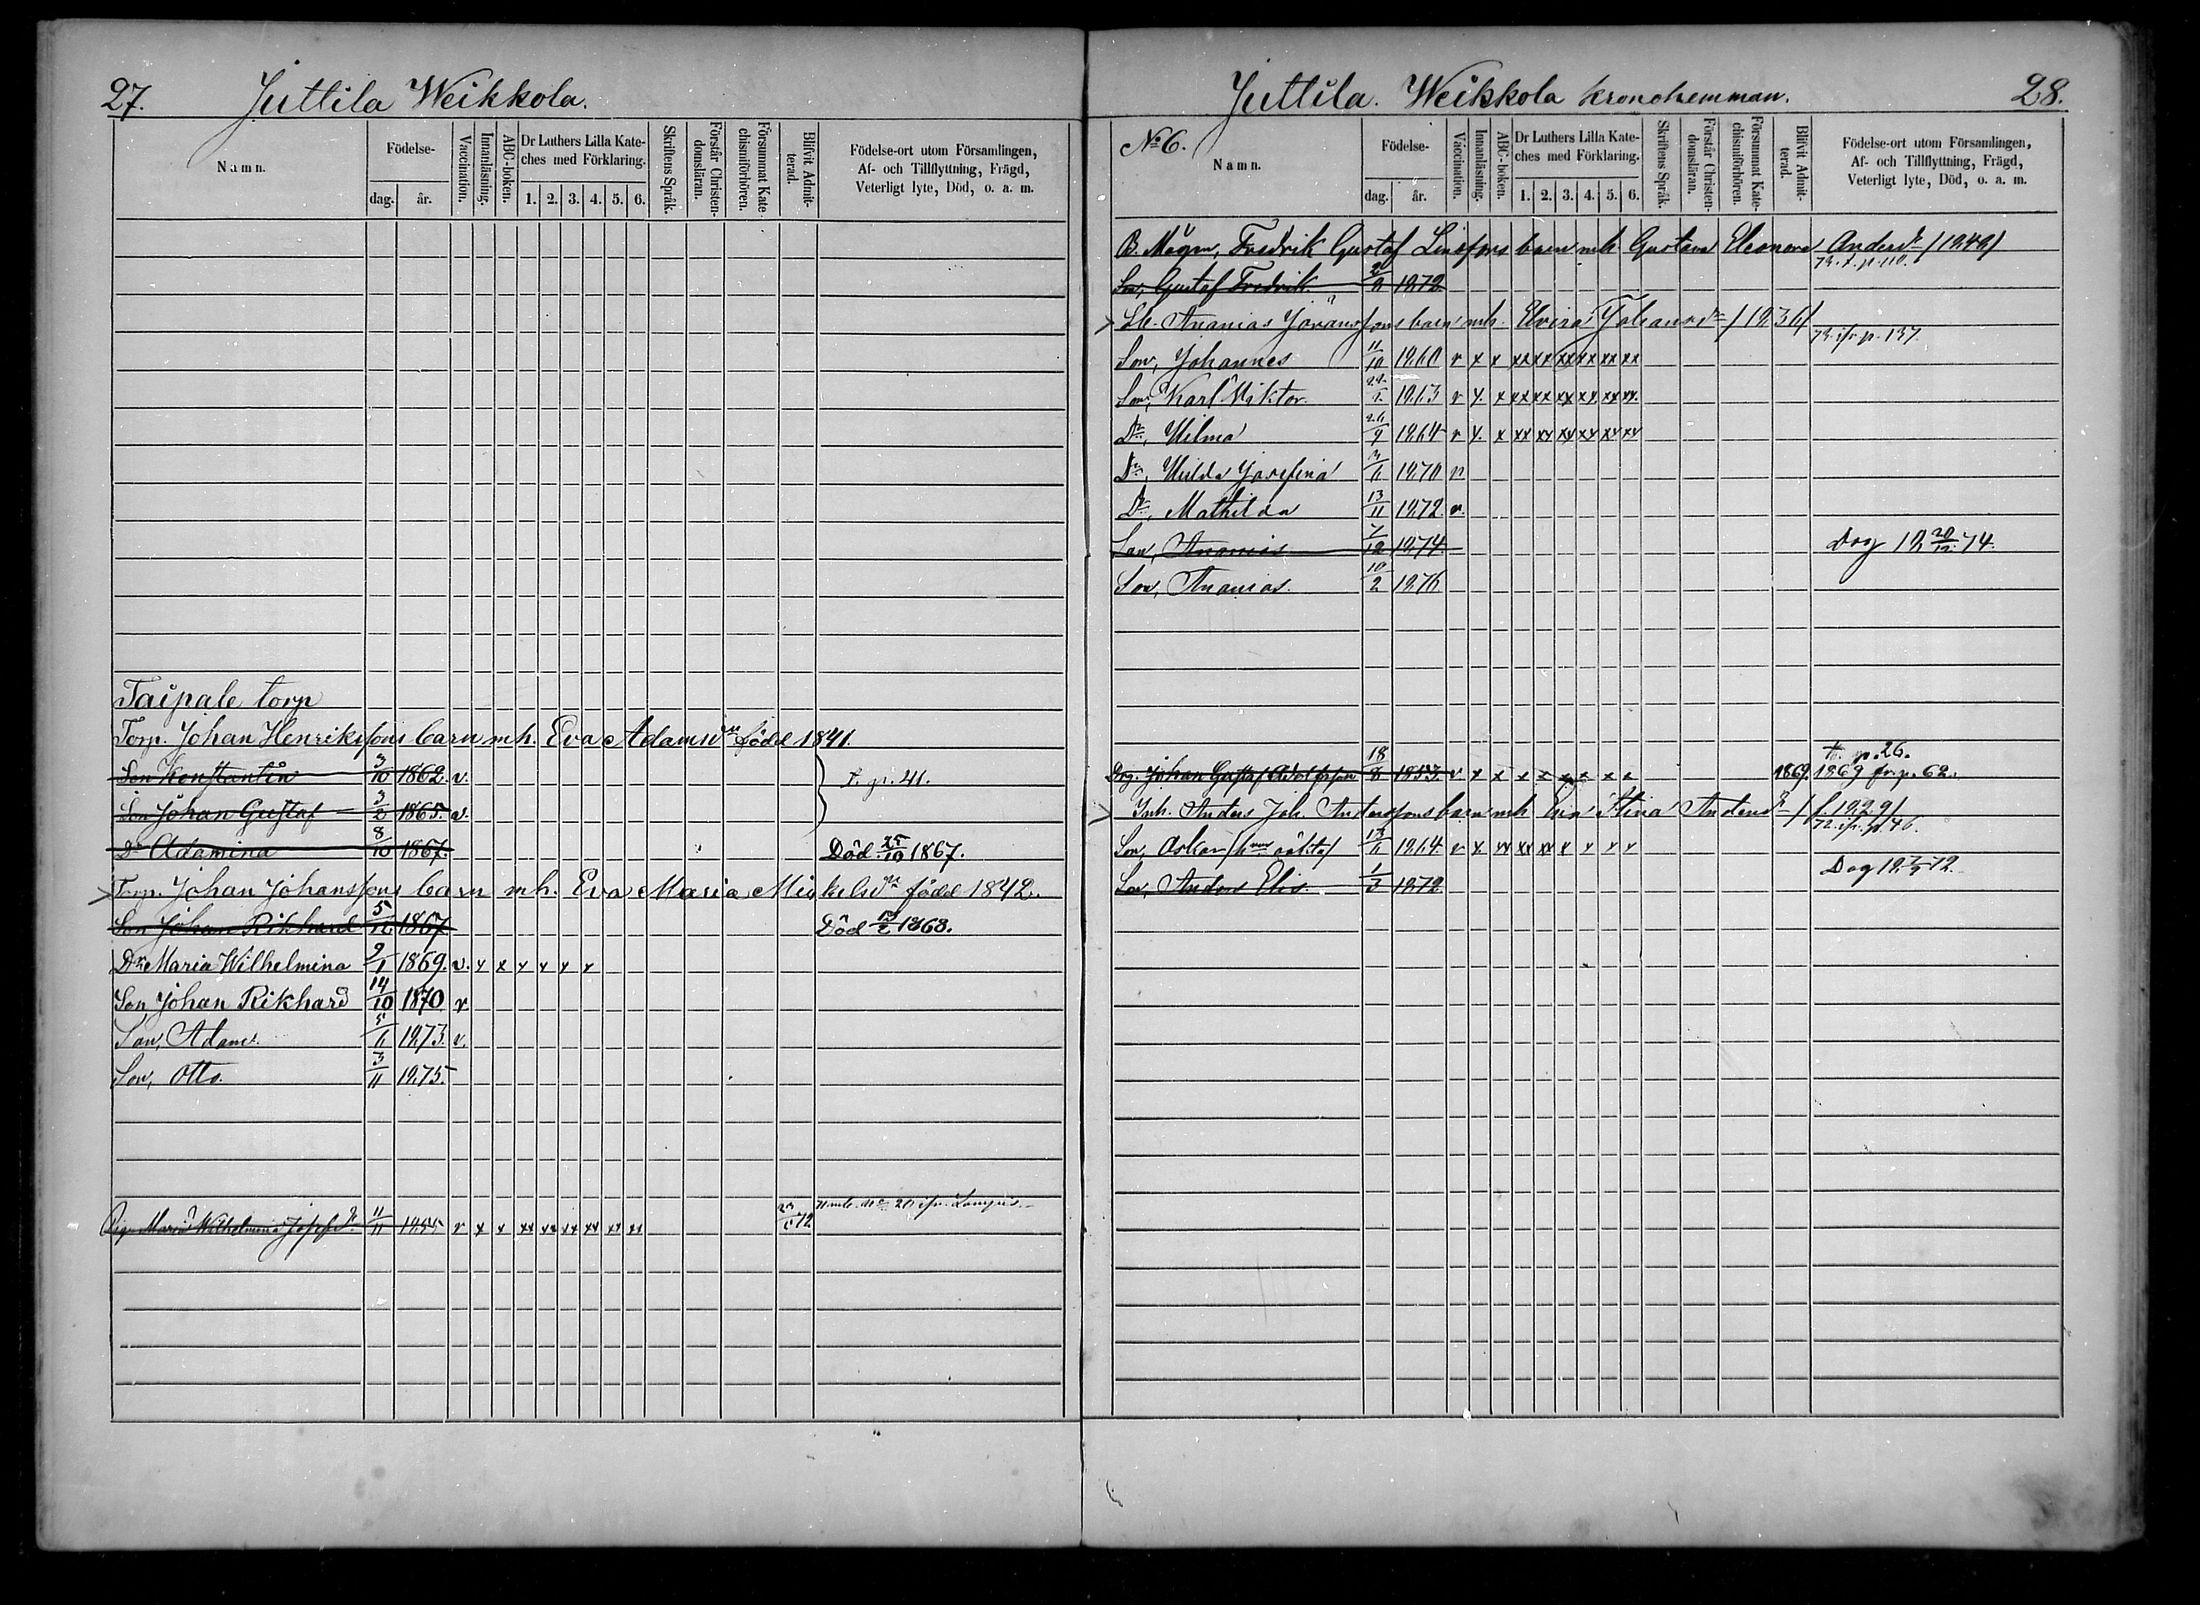 27. Juttila Weikkola.
Namn.
Födelse-
dag. år.
Vaccination.
Innanläsning.
ABC-boken.
Dr Luthers Lilla Kate-
ches med Förklaring.
1. 2. 3. 4. 5. 6.
Skriftens Språk.
Förstår Christen-
domsläran.
Försummat Kate-
chismiförhören.
Blifvit Admit-
terad.
Födelse-ort utom Församlingen,
Af- och Tillflyttning, Frägd,
Veterligt lyte, Död, o. a. m.
Taipale torp
Torp. Johan Henrikssons barn m h. Eva Adamsdr född 1841.
Son Konstantin 3/10 1862. v. t. p. 41.
Son Johan Gustaf 3/2 1865. v.
Dr Adamina 8/10 1867. Död 25/10 1867.
Torp. Johan Johanssons barn m h. Eva Maria Mickelsdr född 1842.
Son Johan Rikhard 5/12 1867 Död 1868.
Dr Maria Wilhelmina 9/1 1869. v. x x x x x x
Son Johan Rikhard 14/10 1870 v
Son, Adam 5/6 1873. v.
Son, Otto. 3/11 1875.
Maria Wilhelmina Josefsdr 11/11 1855 v x x xx xx xx xx xx xx 72
Juttila. Weikkola kronohemman. 28.
No 6.
Namn.
Födelse-
dag. år.
Vaccination.
Innanläsning.
ABC-boken.
Dr Luthers Lilla Kate-
ches med Förklaring.
1. 2. 3. 4. 5. 6.
Skriftens Språk.
Förstår Christen-
domsläran.
Försummat Kate-
chismiförhören.
Blifvit Admit-
terad.
Födelse-ort utom Församlingen,
Af- och Tillflyttning, Frägd,
Veterligt lyte, Död, o. a. m.
B. Mågen, Fredrik Gustaf Lindfors barn m h. Gustava Eleonora Andersdr /1849/
73. t. p. 110.
Son, Gustaf Fredrik 1872.
Ananias Göranssons barn m h. Elvira Johansdr /1836/
73. ifr. p. 137.
Son, Johannes 11/10 1860 v x x xx xx xx xx xx xx
Son, Karl Viktor 1863 v x. x xx xx xx xx xx xx
Dr, Wilma 26/9 1864 v x. x xx xx xx xx xx xx
Dr, Hilda Josefina 3/6 1870 v.
Dr, Mathilda 13/11 1872. v.
Son, Ananias 7/12 1874. Dog 18 20/12 74.
Son, Ananias. 10/2 1876.
t. p. 26.
Johan Gustaf Adolfsson 18/8 1853. v x x x x x x x x 1869. 1869 fr. p. 62.
Inh. Anders Joh. Anderssons barn m h Eva Stina Andersdr / f. 1829/
72. ifr. p. 46.
Son, Oskar 13/6 1864 v x xx xx xx x x x x
Son, Anders Elis. 1/3 1872. Dog 18 72.